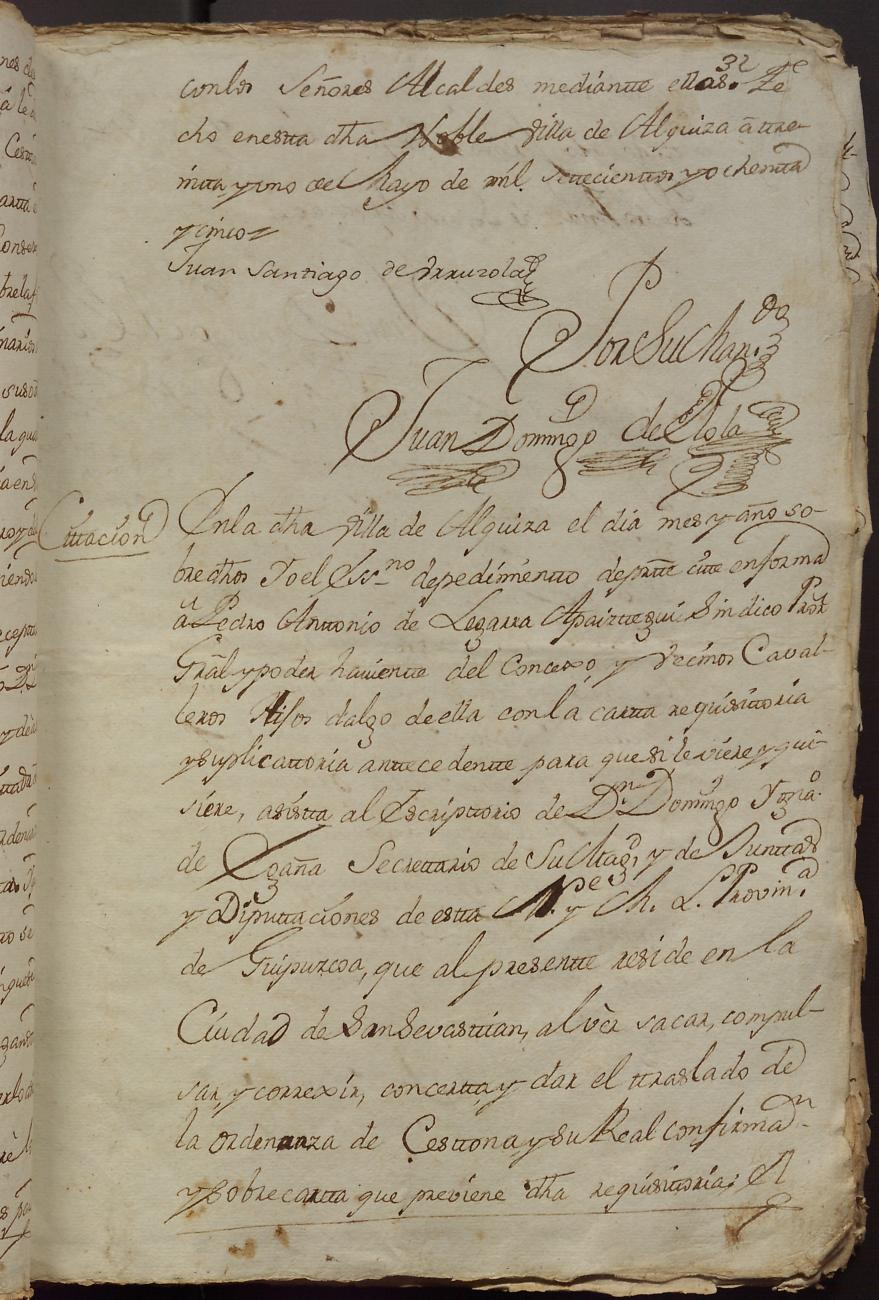 32
con los Señores Alcaldes mediantte ellas. Fe
cho en estta dha Noble Villa de Alquiza â ttre-
intta y uno de Mayo de mil settecienttos y ochentta
y cinco =
Juan Santiago de Urruzola
Por Su Man.do
Juan Domingo de
Cittacion
En la dha Villa de Alquiza el dia mes y año so-
bredhos Yo el Ess.no de pedimientto de partte citte en forma
a Pedro Anttonio de Legarra Apairttegui Sindico Pror
Gral y poder havientte del Concexo, y Vecinos Caval-
leros Hijos dalgo de ella con la cartta requisittoria
y suplicattoria anttecedentte para que si le viere y qui-
siere, asistta al Escripttorio de Dn. Domingo Ygnã.o
de Egaña Secrettario de Su Mag.d, y de Junttas
y Diputtaciones de estta M. N. y M. L. Provin.a
de Guipuzcoa, que al presentte reside en la
Ciudad de San Sevasttian, al vèr sacar, compul-
sar, y correxir, concerttar y dar el ttraslado de
la ordenanza de Cesttona y su Real confirmaon
y sobrecartta que previene dha requisittoria;